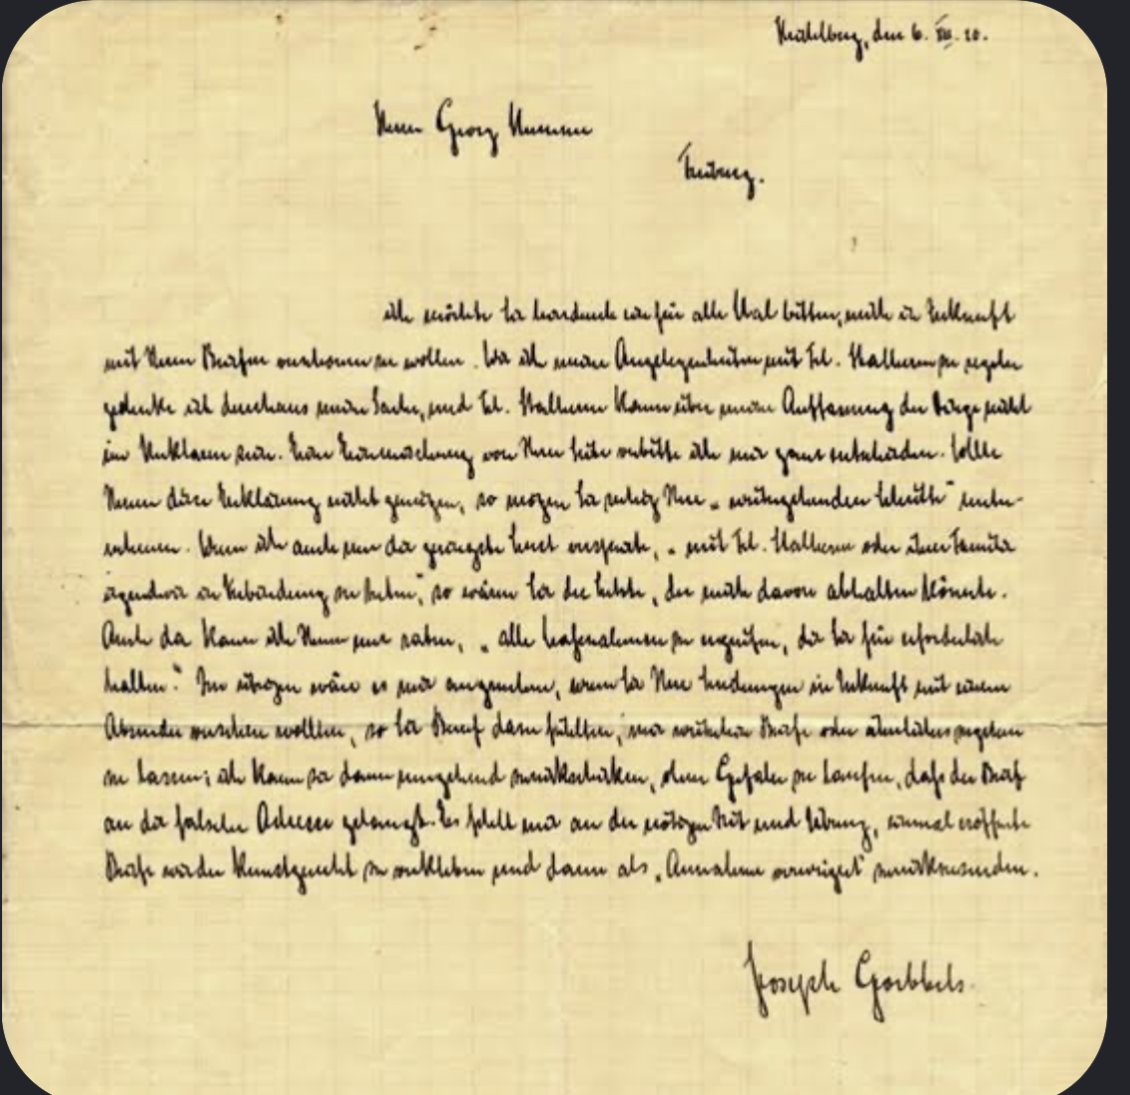 Heidelberg, den 6. XII. 20.
Herrn Georg Mumme
Freiburg.
ich möchte Sie hierdurch ein für alle Mal bitten, mich in Zukunft
mit Ihren Briefen verschonen zu wollen. Wie ich meine Angelegenheiten mit Frl. Stalherm zu regeln
gedenke ist durchaus meine Sache, und Frl. Stalherm kann über meine Auffassung der Dinge nicht
im Unklaren sein. Eine Einmischung von Ihrer Seite verbitte ich mir ganz entschieden. Sollte
Ihnen diese Erklärung nicht genügen, so mögen Sie ruhig Ihre „weitergehenden Schritte“ unter-
nehmen. Wenn ich auch nur die geringste Lust verspürte, „mit Frl. Stalherm oder ihrer Familie
irgendwie in Verbindung zu treten“, so wären Sie der Letzte, der mich davon abhalten könnte.
Auch da kann ich Ihnen nur raten, „alle Massnahmen zu ergreifen, die Sie für erforderlich
halten.“ Im übrigen wäre es mir angenehm, wenn Sie Ihre Sendungen in Zukunft mit einem
Absender versehen wollten, so Sie Beruf dazu fühlten, mir weiterhin Briefe oder ähnliches zugehen
zu lassen; ich kann sie dann umgehend zurückschicken, ohne Gefahr zu laufen, daß der Brief
an die falsche Adresse gelangt. Es fehlt mir an der nötigen Zeit und Übung, einmal eröffnete
Briefe wieder kunstgerecht zu verkleben und dann als „Annahme verweigert“ zurückzusenden.
Joseph Goebbels.